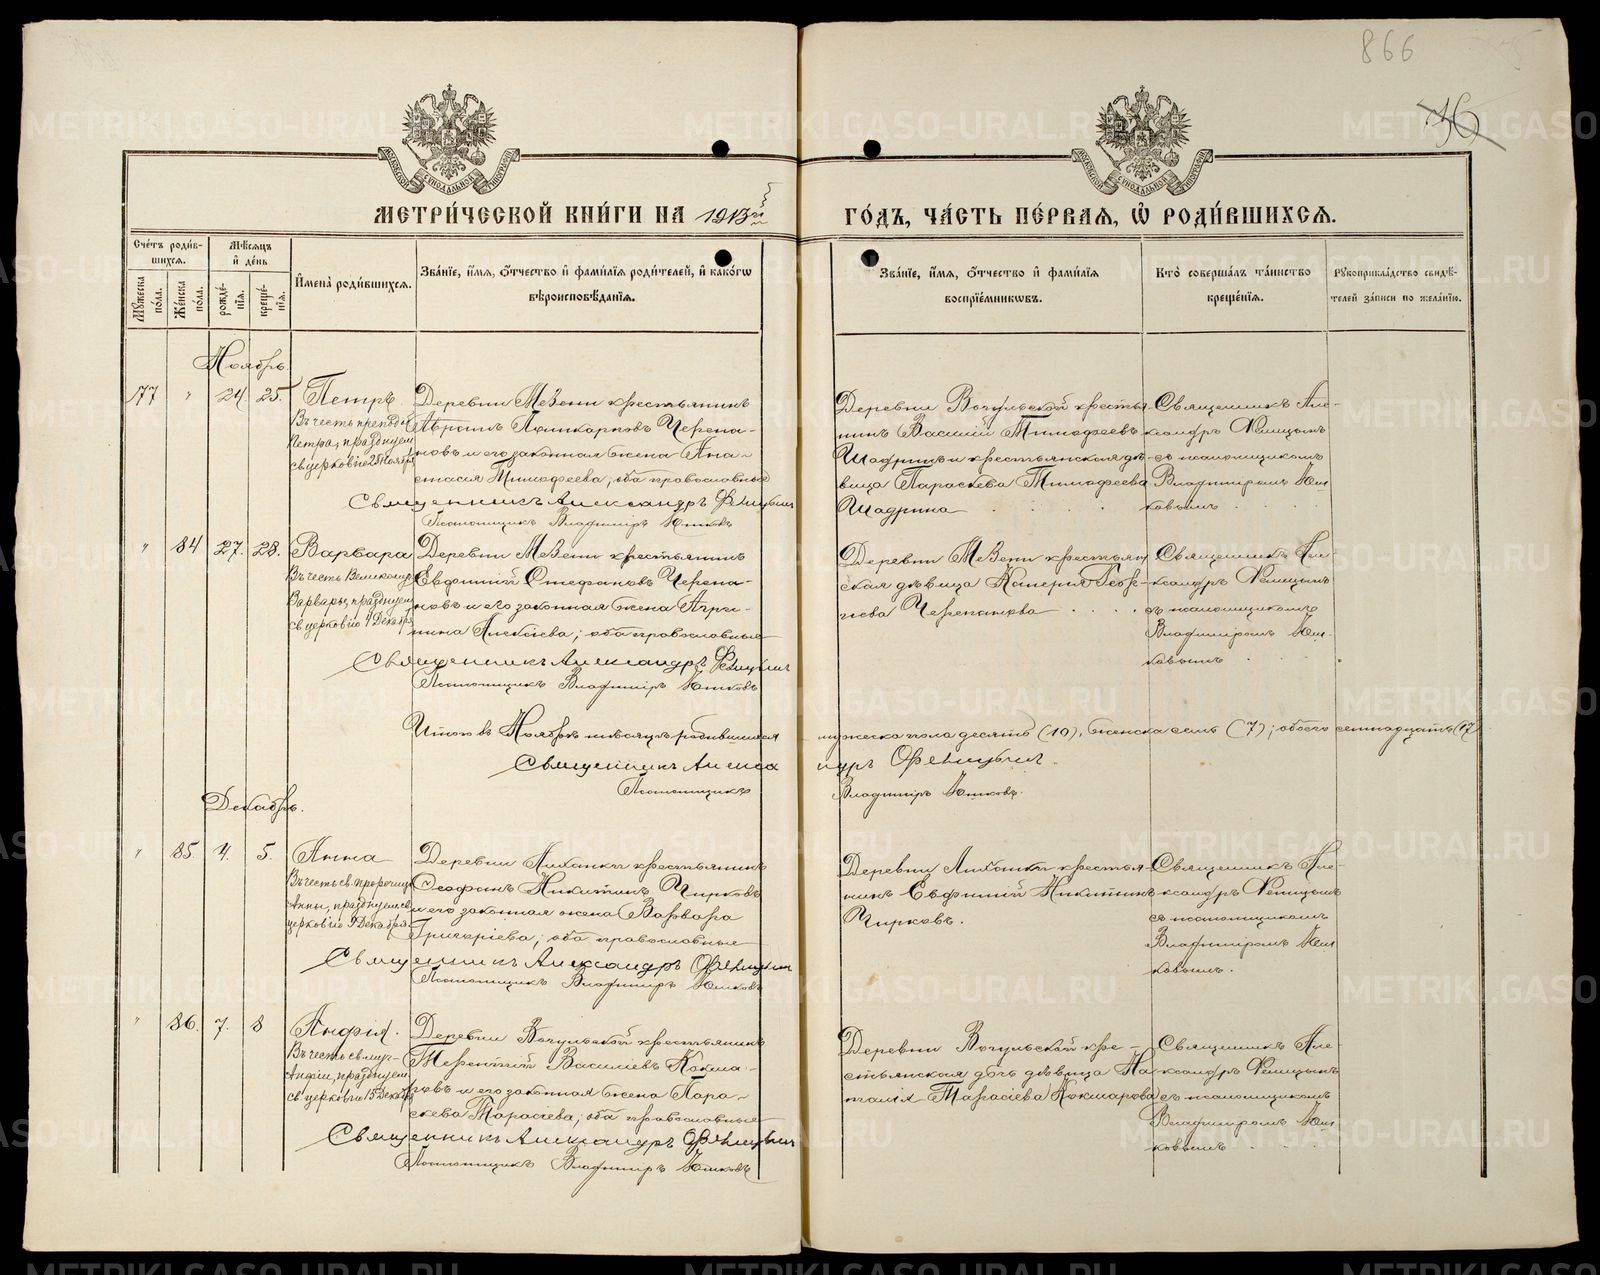 866
36
МЕТРИ́ЧЕСКОЙ КНИ́ГИ НА 1913й
ГО́ДЪ, ЧА́СТЬ ПЕ́РВАЯ, Ѡ҆ РОДИ́ВШИХСЯ.
Сче́тъ роди́вшихся.
Му́жеска пола.
Же́нска пола.
Мѣ́сяцъ и҆ де́нь
рожде́нїя.
креще́нїя.
И҆мена̀ роди́вшихся.
Зва́нїе, и҆́мя, ѻ҆́тчество и҆ фами́лїя роди́телей, и҆ како́гѡ
вѣроисповѣ́данїя.
Зва́нїе, и҆́мя, ѻ҆́тчество и҆ фами́лїя
воспрїе́мникѡвъ.
Кто̀ соверша́лъ та́инство
креще́нїя.
Рꙋкоприкла́дство свидѣ́-
телей за́писи по жела́нїю.
Ноябрь.
77 " 24 25.
Петръ
Въ честь преподоб.
Петра, празднуем.
св. церковію 25 Ноября
Деревни Мезени крестьянинъ
Авраамъ Поликарповъ Черепа-
новъ и его законная жена Ана-
стасія Тимофеева; оба православные
Священникъ Александръ Фелицынъ
Псаломщикъ Владиміръ Юшковъ
Деревни Вогульской крестья-
нинъ Василій Тимофеевъ
Шадринъ и крестьянская дѣ-
вица Параскева Тимофеева
Шадрина
Священникъ Але-
ксандръ Фелицынъ
съ псаломщикомъ
Владиміромъ Юш-
ковымъ
" 84 27. 28.
Варвара
Въ честь Великомуч.
Варвары, празднуем.
св. церковію 4 Декабря
Деревни Мезени крестьянинъ
Евфимій Стефановъ Черепа-
новъ и его законная жена Агри-
пина Алексіева; оба православные
Священникъ Александръ Фелицынъ
Псаломщикъ Владиміръ Юшковъ
Деревни Мезени крестьян-
ская дѣвица Валерія Геор-
гіева Черепанова
Священникъ Але-
ксандръ Фелицынъ
съ псаломщикомъ
Владиміромъ Юш-
ковымъ
Итого въ Ноябрѣ мѣсяцѣ родившихся мужеска пола десять (10), женска семь (7); обоего семнадцать (17)
Священникъ Александръ Фелицынъ.
Псаломщикъ Владиміръ Юшковъ.
Декабрь.
" 85. 4. 5.
Анна
Въ честь св. пророчицы
Анны, празднуем. св.
церковію 9 Декабря
Деревни
крестьянинъ
Феофанъ Никитинъ Чирковъ
и его законная жена Варвара
Григоріева; оба православные
Священникъ Александръ Фелицынъ
Псаломщикъ Владиміръ Юшковъ
Деревни
крестья-
нинъ Евфимій Никитинъ
Чирковъ.
Священникъ Але-
ксандръ Фелицынъ
съ псаломщикомъ
Владиміромъ Юш-
ковымъ.
" 86. 7. 8
Анфія.
Въ честь св. муч-
Анфіи, празднуем.
св. церковію 15 Декабр.
Деревни Вогульской крестьянинъ
Терентій Василіевъ Кокша-
ровъ и его законная жена Пара-
скева Тарасіева; оба православные
Священникъ Александръ Фелицынъ
Псаломщикъ Владиміръ Юшковъ
Деревни Вогульской кре-
стьянская дочь дѣвица На-
талія Тарасіева Кокшарова
Священникъ Але-
ксандръ Фелицынъ
съ псаломщикомъ
Владиміромъ Юш-
ковымъ
METRIKI.GASO-URAL.RU